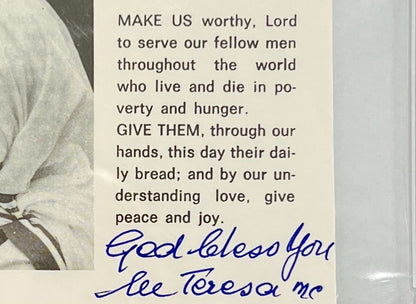 MAKE US worthy, Lord
to serve our fellow men
throughout the world
who live and die in po-
verty and hunger.
GIVE THEM, through our
hands, this day their dai-
ly bread; and by our un-
derstanding love, give
peace and joy.
God bless You
M Teresa mc